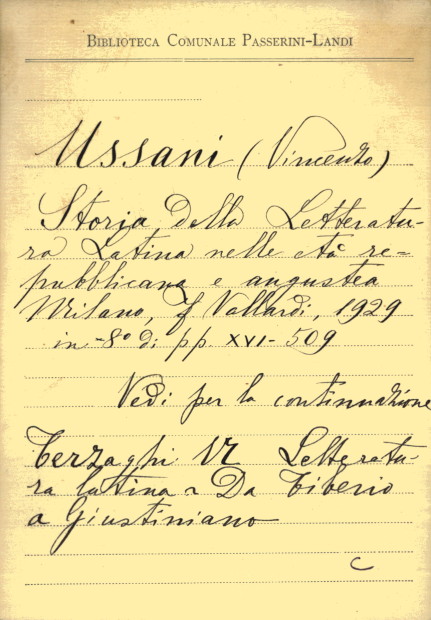 BIBLIOTECA COMUNALE PASSERINI-LANDI
Ussani (Vincenzo)
Storia della Letteratu-
ra Latina nelle età re=
pubblicana e augustea
Milano, F Vallardi, 1929
in -8° di pp. XVI-509
Vedi per la continuazione
Terzaghi N Letteratu-
ra latina Da Tiberio
a Giustiniano
C